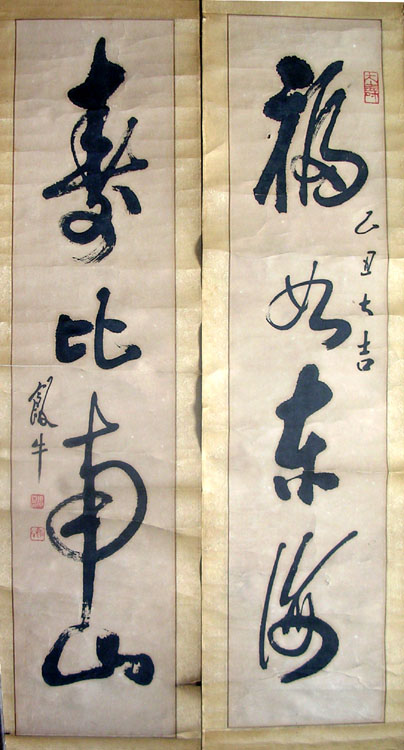 福如东海
乙丑大吉
寿比南山
饭牛